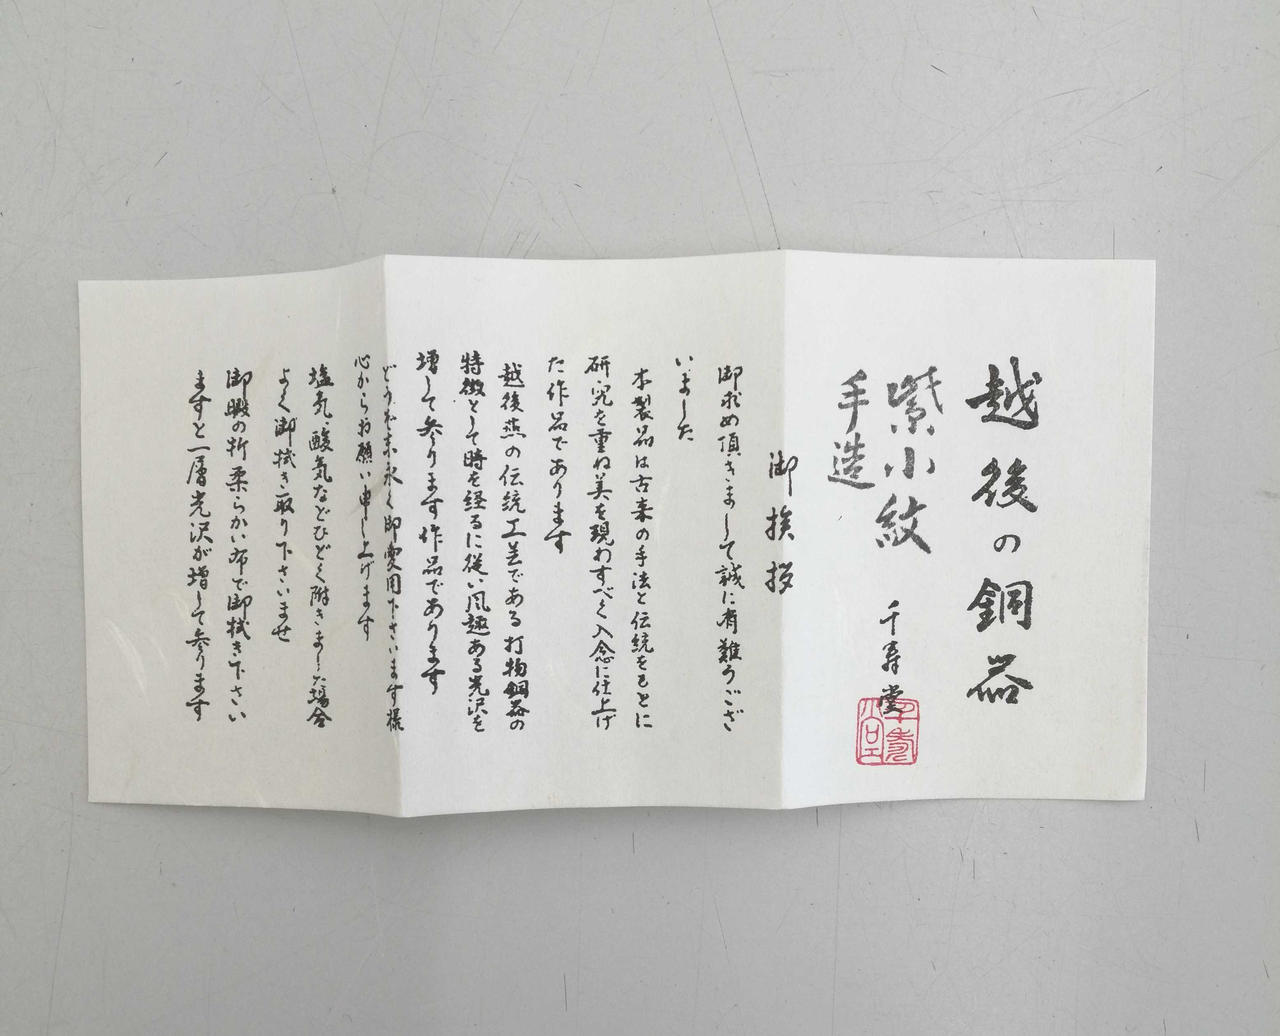 越後の銅器
紫小紋
手造
千寿堂
千寿堂
御挨拶
御求め頂きまして誠に有難うござ
いました
本製品は古来の手法と伝統をもとに
研究を重ね美を現わすべく入念に仕上げ
た作品であります
越後燕の伝統工芸である打物銅器の
特徴として時を経るに従い風趣ある光沢を
増して参ります作品であります
どうぞ末永く御愛用下さいます様
心からお願い申し上げます
塩気、酸気などひどく附きました場合
よく御拭き取り下さいませ
御暇の折柔らかい布で御拭き下さい
ますと一層光沢が増して参ります